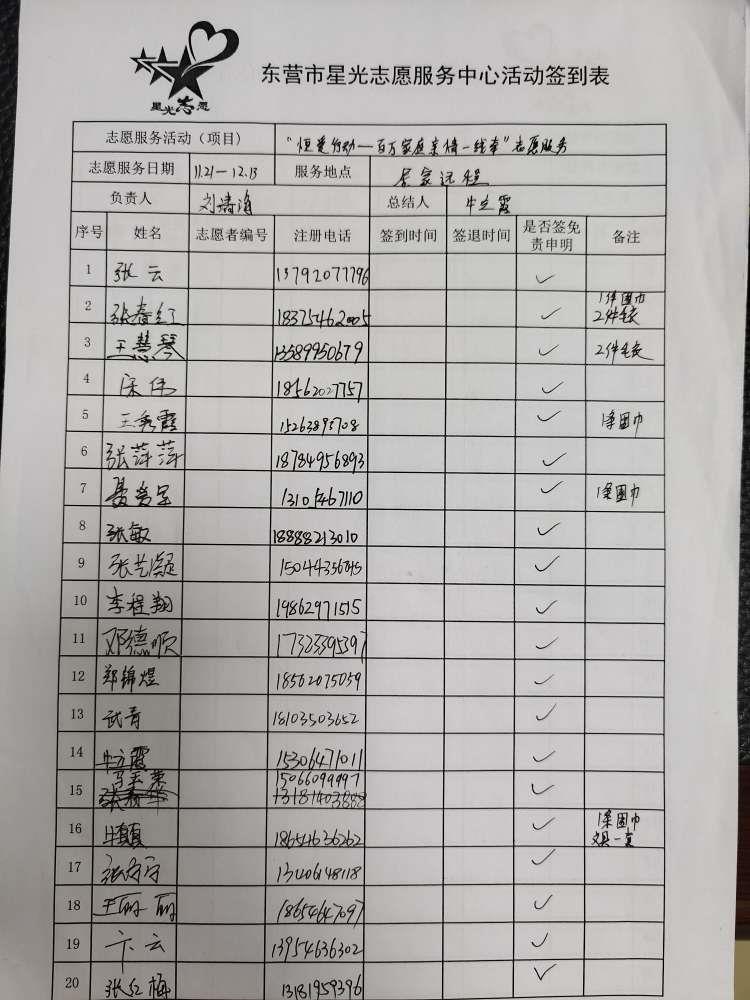 星光志愿
东营市星光志愿服务中心活动签到表
志愿服务活动（项目） "恒爱行动—百万家庭亲情一线牵"志愿服务
志愿服务日期 11.21—12.13 服务地点 居家远程
负责人 刘清海 总结人 牛立霞
序号 姓名 志愿者编号 注册电话 签到时间 签退时间 是否签免责申明 备注
1 张云 13792077796 ✓
2 张春红 18375462005 ✓ 1件围巾 2件毛衣
3 王慧琴 13589950679 ✓ 2件毛衣
4 宋伟 18562027757 ✓
5 王秀霞 15263895708 ✓ 1条围巾
6 张萍萍 18784956893 ✓
7 13105467110 ✓ 1条围巾
8 张敏 18888213010 ✓
9 张艺凝 ✓
10 李程翔 19862971515 ✓
11 邓德顺 17323395397 ✓
12 郑锦煜 18562075039 ✓
13 武青 18103503652 ✓
14 牛立霞 15306471011 ✓
15 马玉荣 15066099997 ✓
16 牛颖 18654636262 ✓ 1条围巾 文具一套
17 张守宁 13406148118 ✓
18 王丽丽 18654647097 ✓
19 卞云 13954636302 ✓
20 张红梅 13181959396 ✓